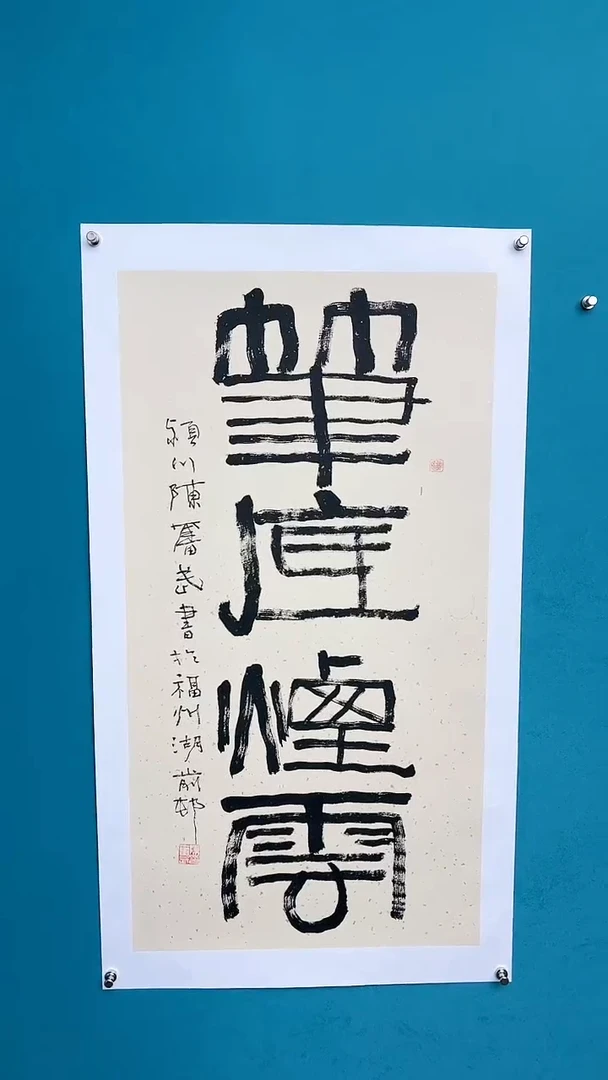 筆底煙雲
潁川陳奮武書於福州湖前邨